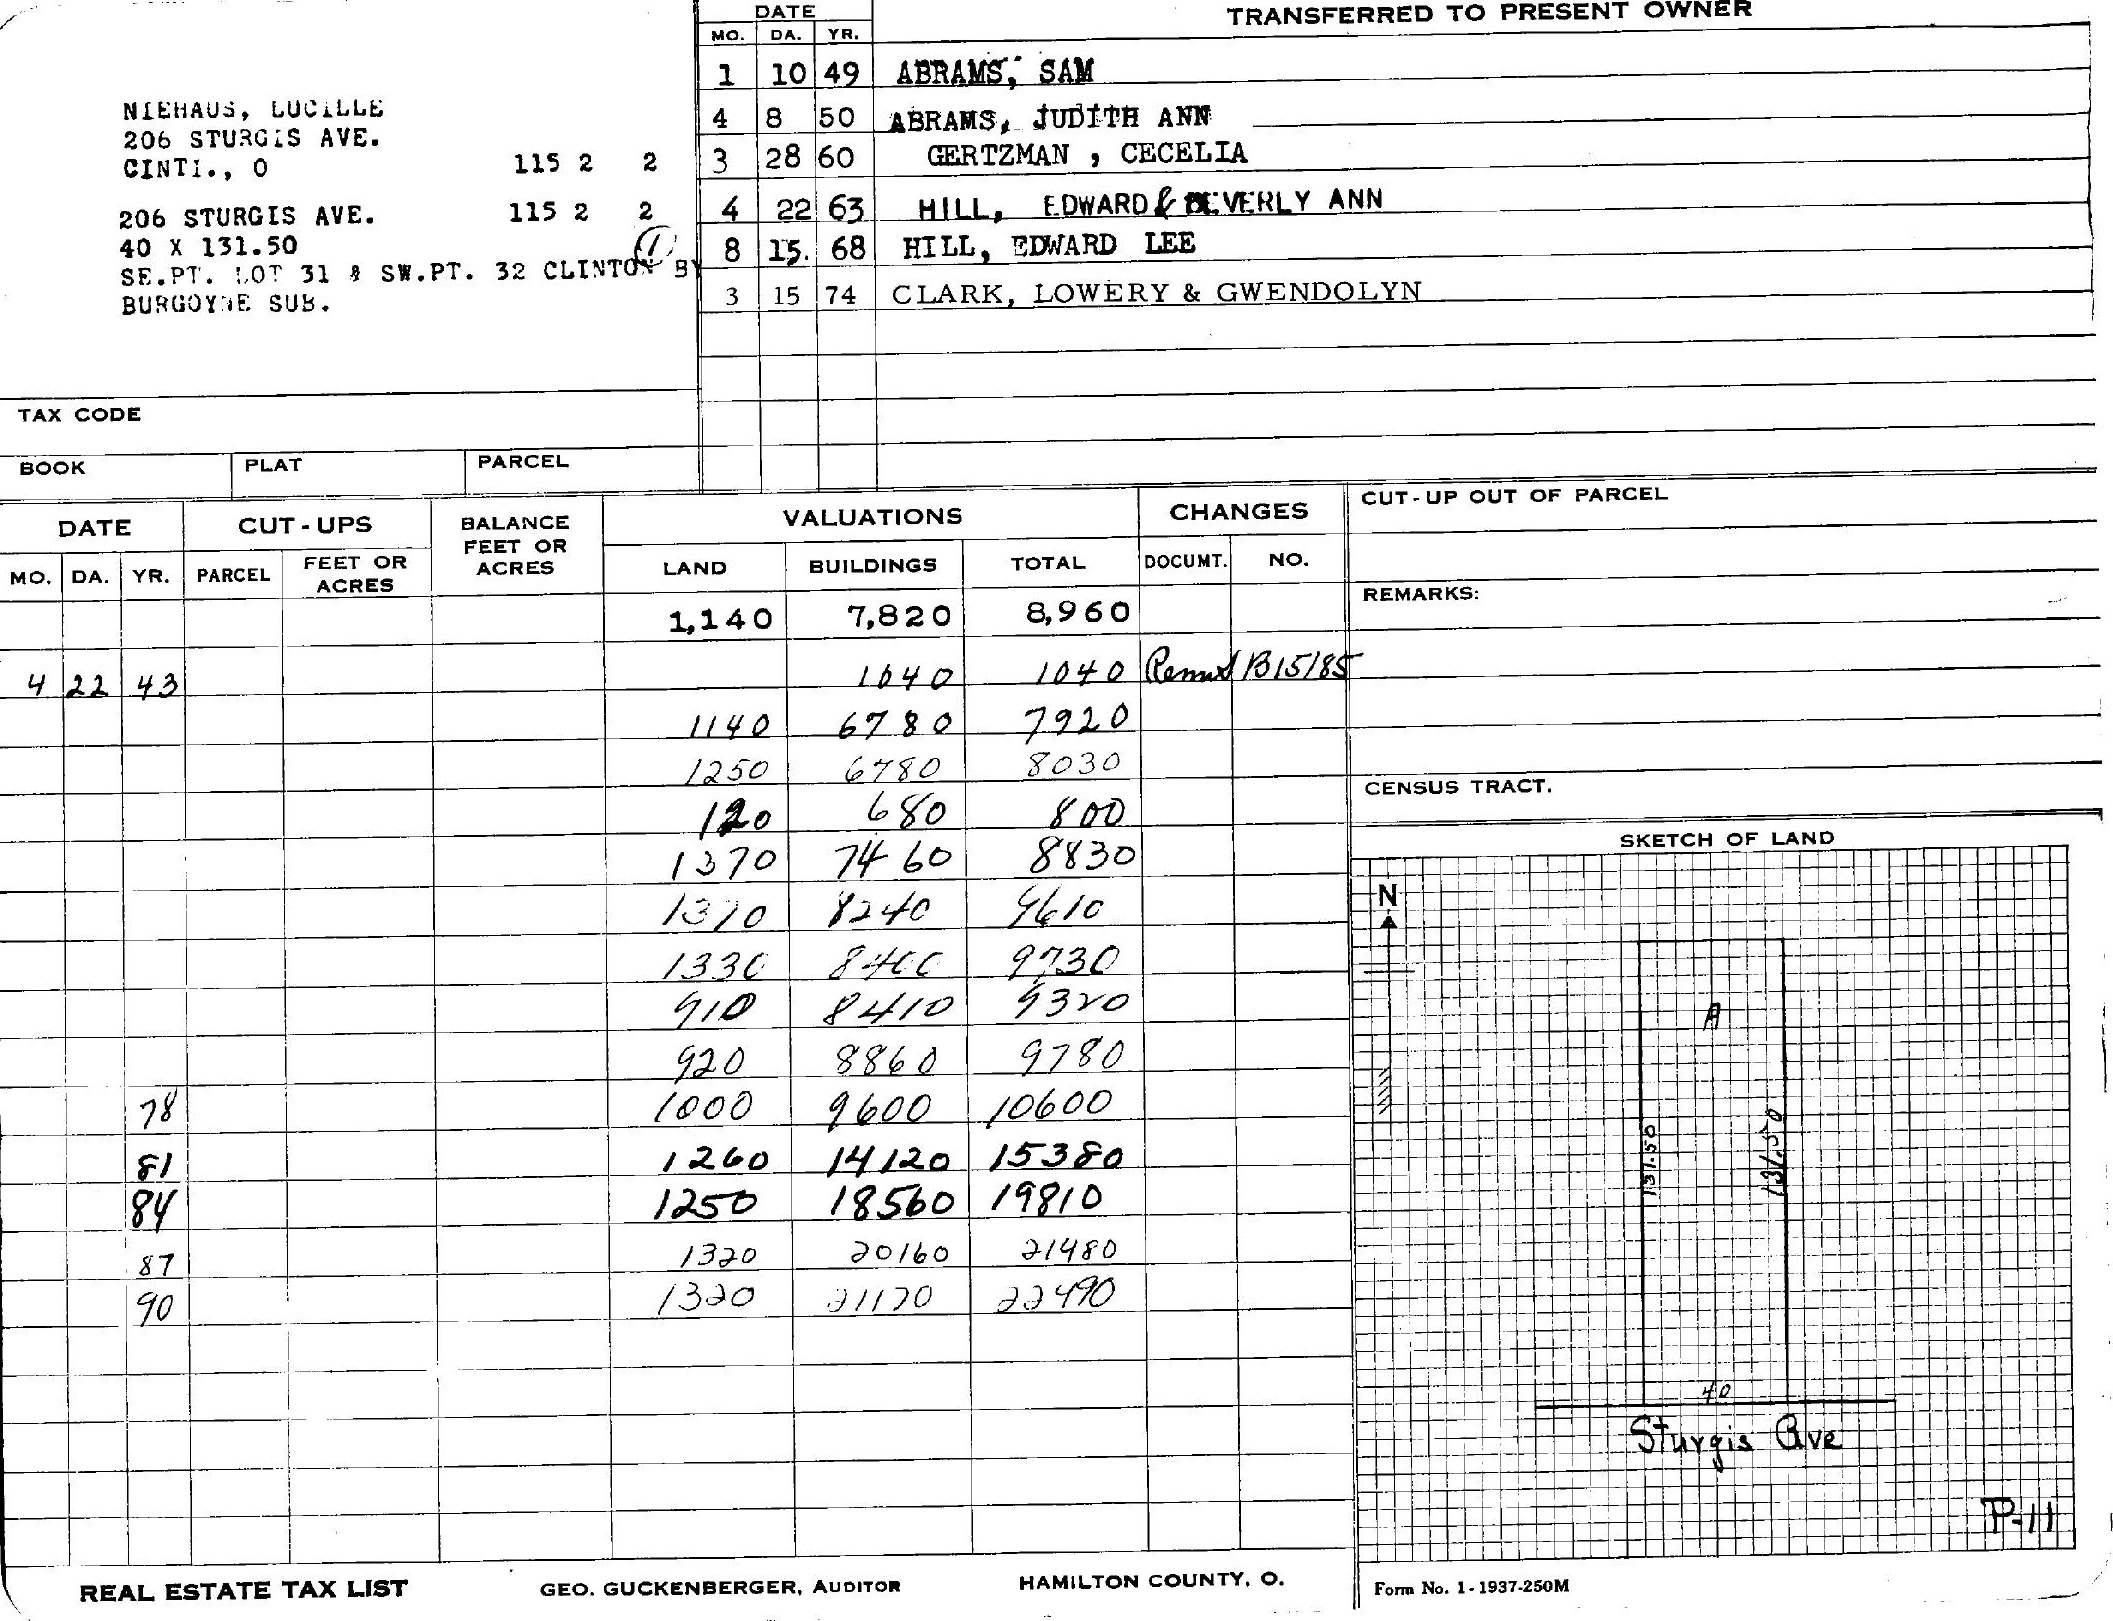 NIEHAUS, LUCILLE
206 STURGIS AVE.
CINTI., O 115 2 2
206 STURGIS AVE. 115 2 2
40 X 131.50
1
SE.PT. LOT 31 & SW.PT. 32 CLINTON BY
BURGOYNE SUB.
DATE TRANSFERRED TO PRESENT OWNER
MO. DA. YR.
1 10 49 ABRAMS, SAM
4 8 50 ABRAMS, JUDITH ANN
3 28 60 GERTZMAN , CECELIA
4 22 63 HILL, EDWARD & BEVERLY ANN
8 15. 68 HILL, EDWARD LEE
3 15 74 CLARK, LOWERY & GWENDOLYN
TAX CODE
BOOK PLAT PARCEL
DATE CUT-UPS BALANCE FEET OR ACRES VALUATIONS CHANGES
MO. DA. YR. PARCEL FEET OR ACRES LAND BUILDINGS TOTAL DOCUMT. NO.
1,140 7,820 8,960
4 22 43 1040 1040 Remit B15185
1140 6780 7920
1250 6780 8030
120 680 800
1370 7460 8830
1370 8240 9610
1330 8400 9730
910 8410 9320
920 8860 9780
78 1000 9600 10600
81 1260 14120 15380
84 1250 18560 19810
87 1320 20160 21480
90 1320 21170 22490
CUT-UP OUT OF PARCEL
REMARKS:
CENSUS TRACT.
SKETCH OF LAND
N
A
131.50
131.50
40
Sturgis Ave
P-11
REAL ESTATE TAX LIST GEO. GUCKENBERGER, AUDITOR HAMILTON COUNTY, O. Form No. 1-1937-250M